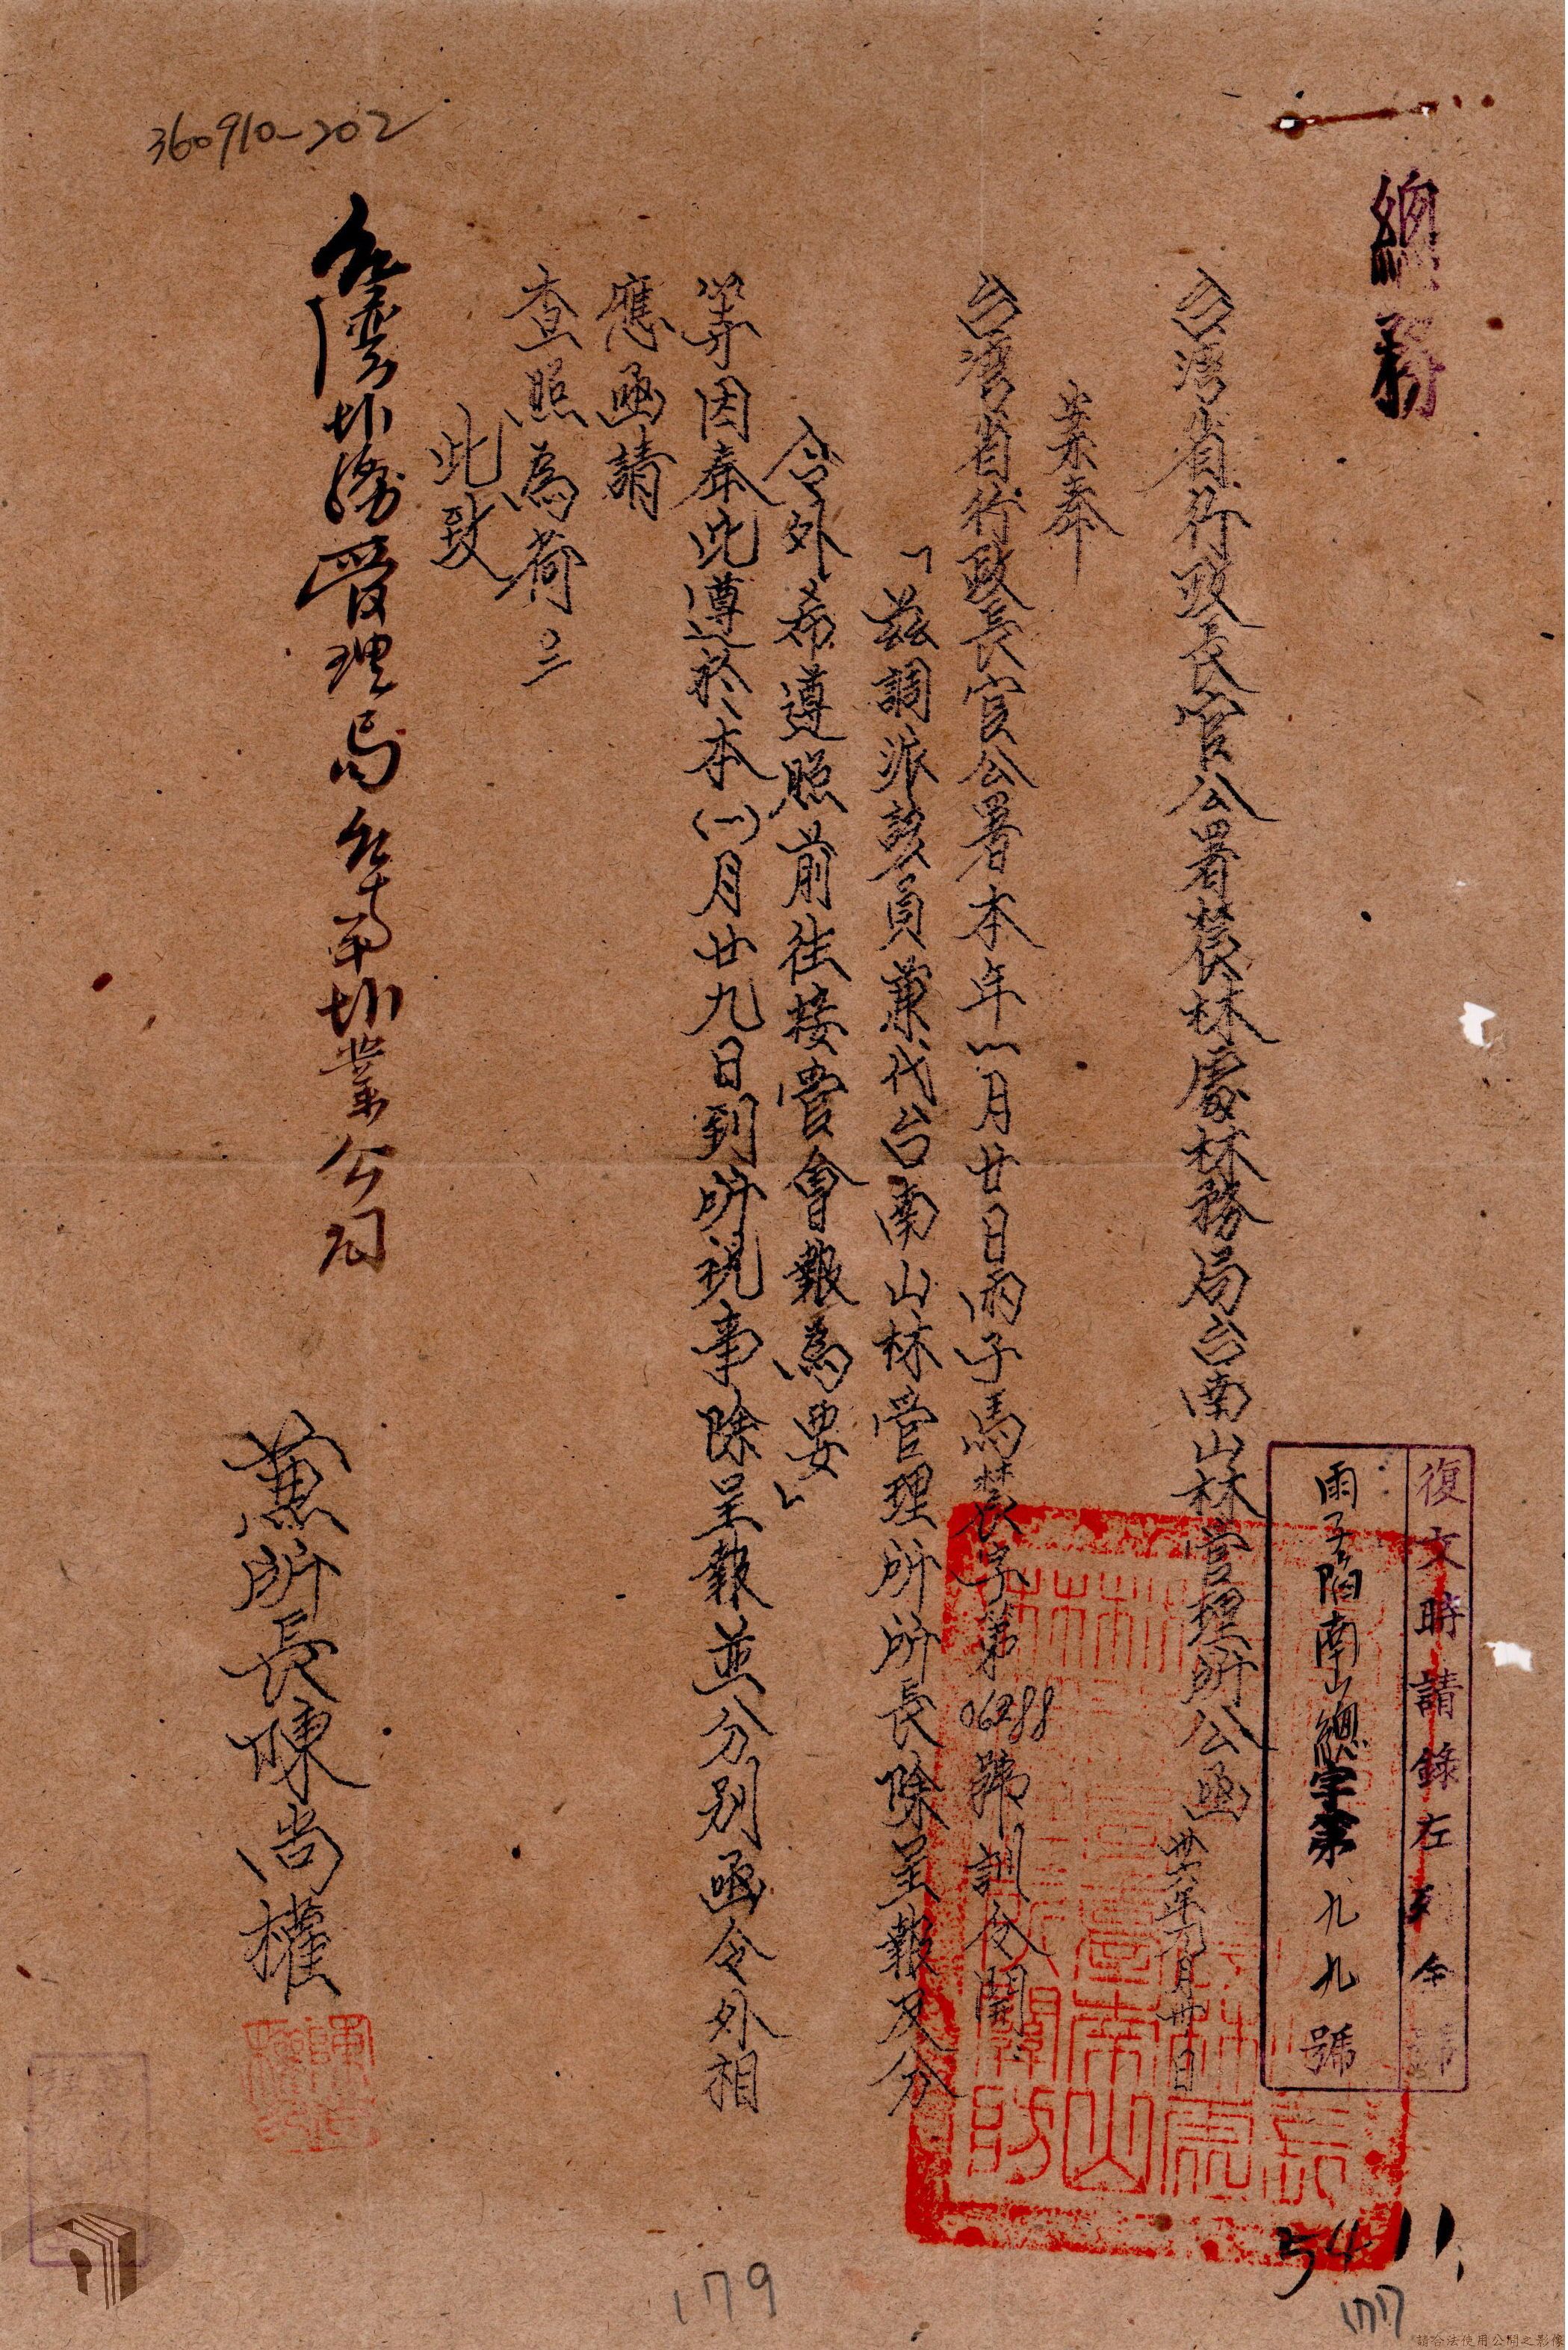 總務
復文時請錄左列全號
雨子陷南山總字第九九號
台灣省行政長官公署農林處林務局台南山林管理所公函 卅六年元月卅日
案奉
台灣省行政長官公署本年一月廿日雨子馬農字第06288號訓令開
「茲調派該員兼代台南山林管理所所長除呈報及分
令外希遵照前往接管會報為要」
等因奉此遵於本(一)月廿九日到所視事除呈報並分別函令外相
應函請
查照為荷
此致
台灣鹽務管理局台南鹽業公司
兼所長陳尚權
360910-202
5411
177
179
請合法使用公開之影像